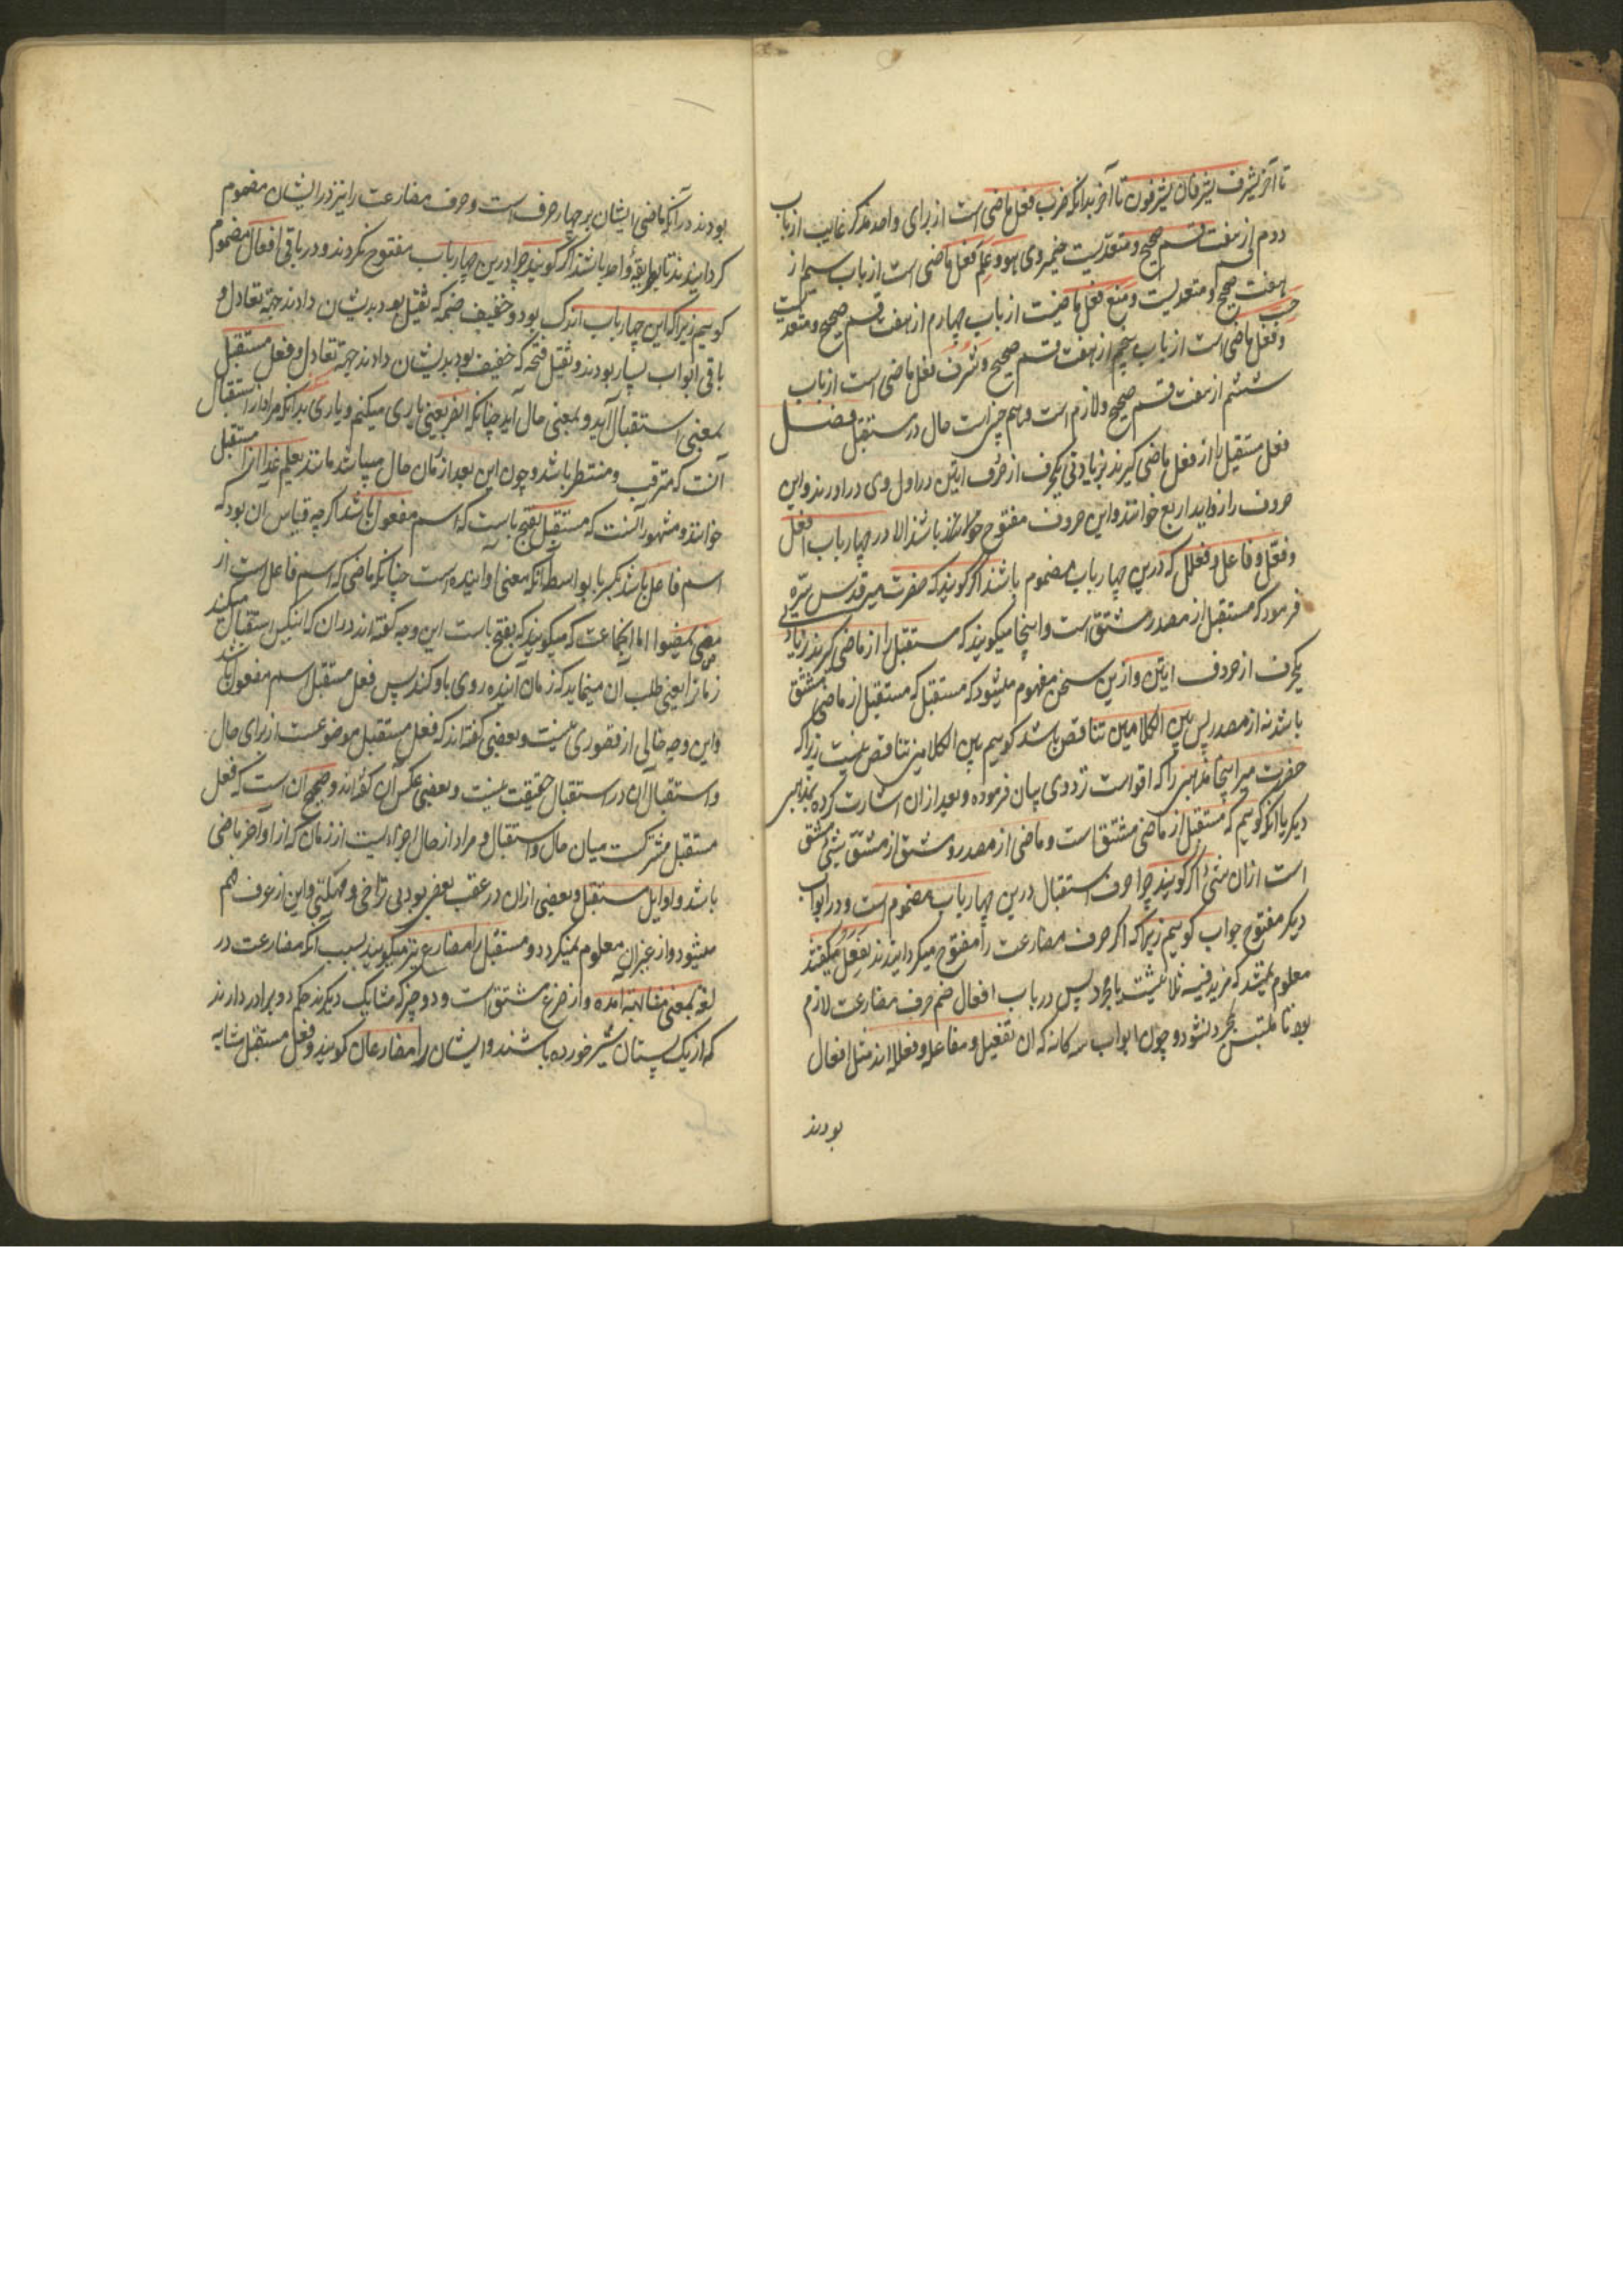 تا آخر یشرف یشرفان یشرفون تا آخر بدانکه ضرب فعل ماضی است از برای واحد مذکر غایب از باب
دوم از هفت قسم صحیح و متعدیست ضمیر وی هو و علم فعل ماضی است از باب سیم از
هفت صحیح و متعدیست و منع فعل ماضیست از باب چهارم از هفت قسم صحیح و متعدیست حسب
و فعل ماضی است از باب پنجم از هفت قسم صحیح و شرف فعل ماضی است از باب
ششم از هفت قسم صحیح و لازم است و همچنین است حال در مستقبل فصل
فعل مستقبل را از فعل ماضی گیرند بزیادتی یکحرف از حرف اتین در اول وی در اورند و این
حروف را زواید اربع خوانند و این حروف مفتوح باشند الا در چهار باب افعل
و فعّل و فاعل و فعلل که درین چهار باب مضموم باشند اگر گویند که حضرت میر قدس سره
فرمود که مستقبل از مصدر مشتق است و اینجا میگویند که مستقبل را از ماضی گیرند بزیادتی
یکحرف از حروف اتین و ازین سخن مفهوم میشود که مستقبل که مستقبل از ماضی مشتق
باشد نه از مصدر پس بین الکلامین تناقض باشد گوییم بین الکلامین تناقض نیست زیرا که
حضرت میر اینجا مذهبی را که اقواست نزد وی بیان فرموده و بعد از ان اشارت کرده بمذهبی
دیگر یا انکه گوییم که مستقبل از ماضی مشتق است و ماضی از مصدر و مشتق از مشتق شیٔ مشتق
است ازان شیٔ اگر گویند چرا حرف استقبال درین چهار باب مضموم است و در ابواب
دیگر مفتوح جواب گوییم زیرا که اگر حرف مضارعت را مفتوح میگردانیدند یفعل میگفتند
معلوم نمیشد که مزید فیه ثلاثیست یا مجرد پس در باب افعال ضم حرف مضارعت لازم
بود تا ملتبس بمجرد نشود و چون ابواب سه کانه که ان تفعیل و مفاعله و فعلله اند مثل افعال
بودند
بودند در آنکه ماضی ایشان بر چهار حرف است و حرف مضارعت را نیز در ایشان مضموم
گردانیدند تا بطریقهٔ واحد باشند اگر گویند چرا درین چهار باب مفتوح نکردند و در باقی افعال مضموم
گوییم زیرا که این چهار باب اندک بود و خفیف ضمه که ثقیل بود بدیشان دادند جهة تعادل و
باقی ابواب بسیار بودند و ثقیل فتحه که خفیف بود بدیشان دادند جهة تعادل و فعل مستقبل
بمعنی استقبال آید و بمعنی حال آید چنانکه انصر یعنی یاری میکنم و یاری بدانکه مراد از استقبال
آنست که مترقب و منتظر باشد و چون این بعد از زمان حال میباشد مانند یعلم غدا انرا مستقبل
خوانند و مشهور آنست که مستقبل بفتح باست که اسم مفعول باشد اگرچه قیاس ان بود که
اسم فاعل باشد بکسر با بواسطه آنکه معنی او اینده است چنانکه ماضی که اسم فاعل است از
مضی یمضی اما انجماعت که میگویند که بفتح باست این وجه گفته اند در ان که اینکس استقبال میکند
زمانرا یعنی طلب ان مینماید که زمان اینده روی باو کند پس فعل مستقبل اسم مفعول باشد
و این وجه خالی از قصوری نیست و بعضی گفته اند که فعل مستقبل موضوعست از برای حال
و استقبال ان در استقبال حقیقت نیست و بعضی عکس ان گفته اند و صحیح ان است که فعل
مستقبل مشترکست میان حال و استقبال و مراد از حال اجزاءیست از زمان که از اواخر ماضی
باشد و اوایل مستقبل و بعضی ازان در عقب بعضی بود بی تراخی و مهلتی و این از عرف فهم
میشود و از غیر ان معلوم نمیگردد و مستقبل را مضارع نیز میگویند بسبب آنکه مضارعت در
لغة بمعنی مشابهة آمده و از ضرع مشتق است و دو چیز که مشابه یکدیگرند حکم دو برادر دارند
که از یک پستان شیر خورده باشند و ایشان را مضارعان گویند و فعل مستقبل مشابه